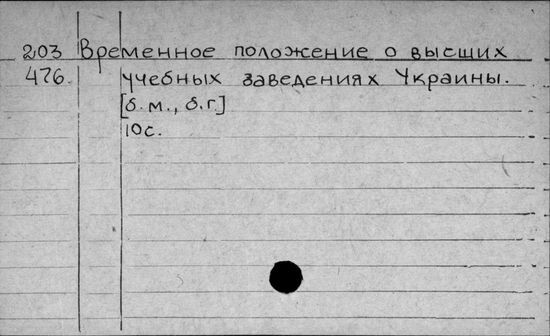 203 Временное положение о высших
476. учебных заведениях Украины.
[б.м., б.г.]
10с.